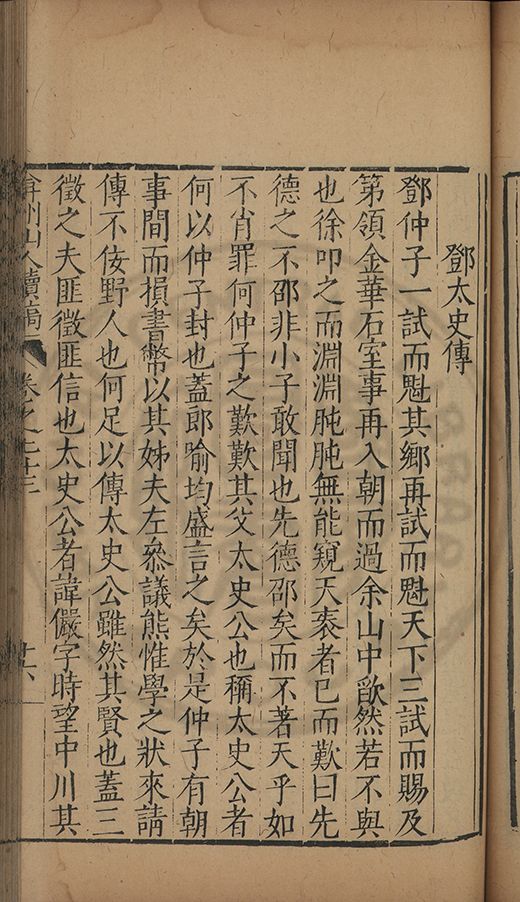 鄧太史傳
鄧仲子一試而魁其鄉再試而魁天下三試而賜及
第領金華石室事再入朝而過余山中歆然若不與
也徐叩之而淵淵肫肫無能窺天袠者已而歎曰先
德之不邵非小子敢聞也先德邵矣而不著天乎如
不肖罪何仲子之歎歎其父太史公也稱太史公者
何以仲子封也蓋郎喻均盛言之矣於是仲子有朝
事間而損書幣以其姊夫左叅議熊惟學之狀來請
傳不佞野人也何足以傳太史公雖然其賢也蓋三
徵之夫匪徵匪信也太史公者諱儼字時望中川其
弇州山人續稿 卷之七十三 廿六